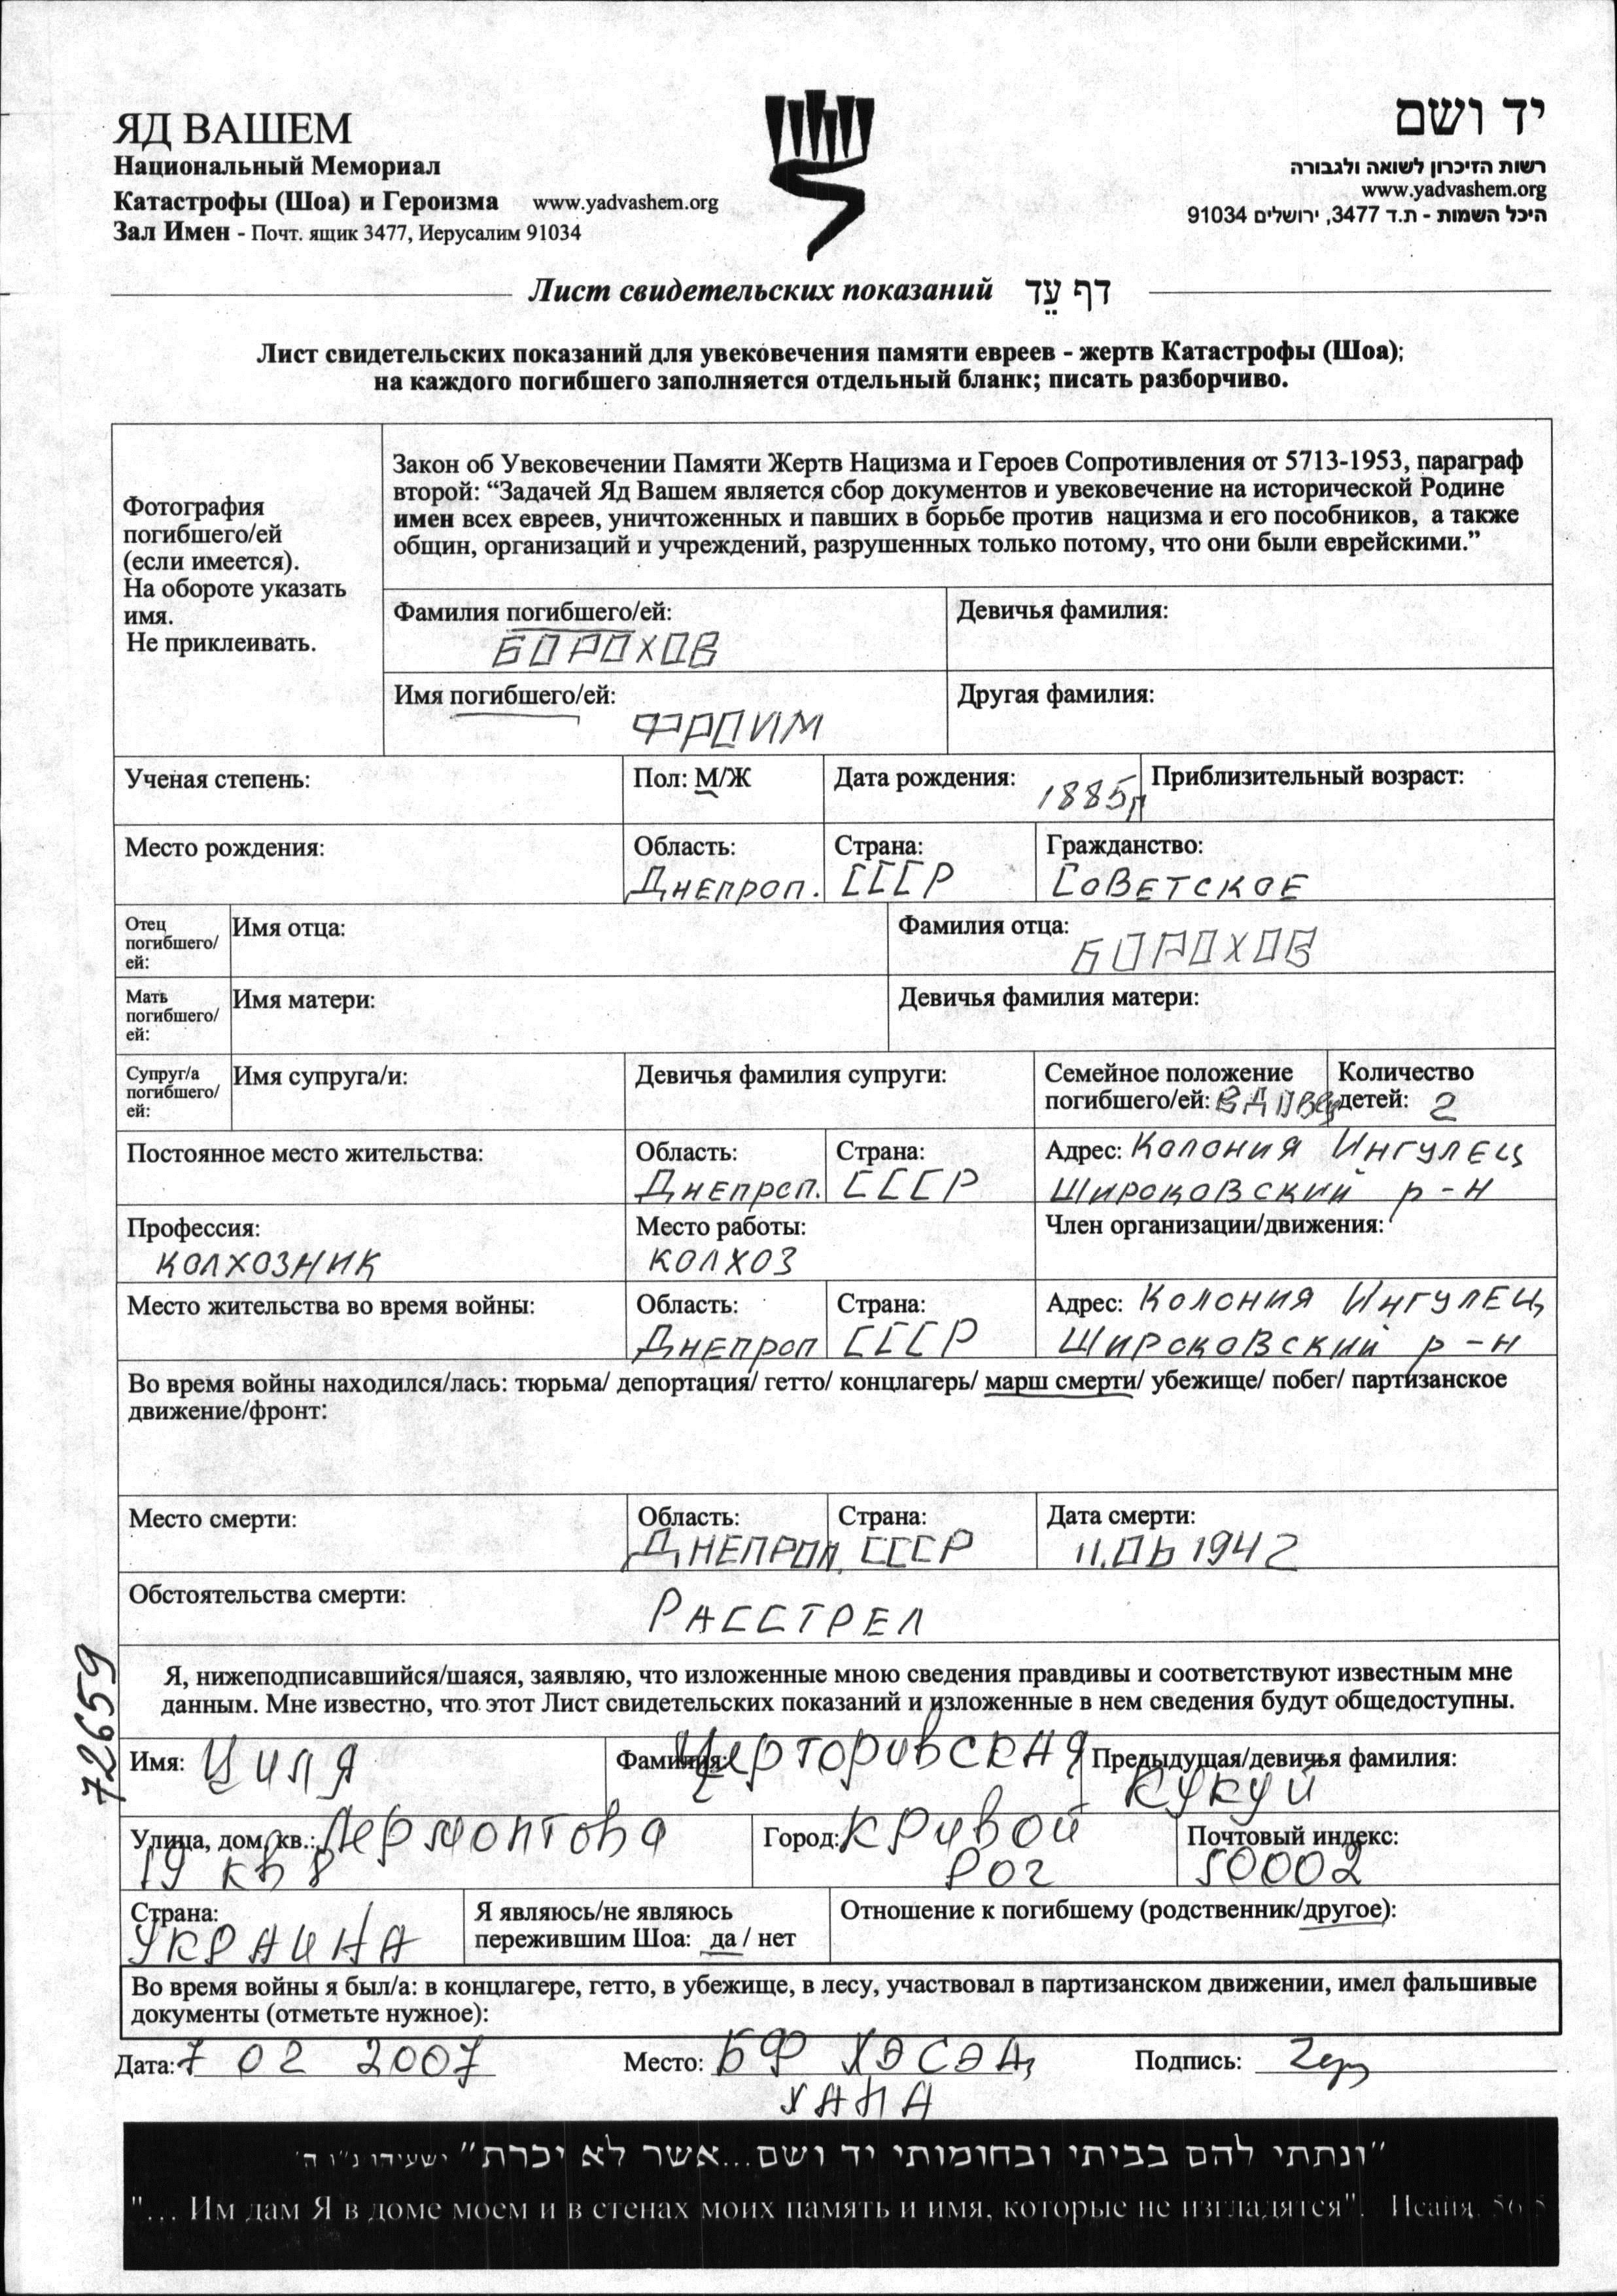 ЯД ВАШЕМ
Национальный Мемориал
Катастрофы (Шоа) и Героизма www.yadvashem.org
Зал Имен - Почт. ящик 3477, Иерусалим 91034
יד ושם
רשות הזיכרון לשואה ולגבורה
www.yadvashem.org
היכל השמות - ת.ד 3477, ירושלים 91034
Лист свидетельских показаний דף עֵד
Лист свидетельских показаний для увековечения памяти евреев - жертв Катастрофы (Шоа);
на каждого погибшего заполняется отдельный бланк; писать разборчиво.
Фотография
погибшего/ей
(если имеется).
На обороте указать
имя.
Не приклеивать.
Закон об Увековечении Памяти Жертв Нацизма и Героев Сопротивления от 5713-1953, параграф
второй: “Задачей Яд Вашем является сбор документов и увековечение на исторической Родине
имен всех евреев, уничтоженных и павших в борьбе против нацизма и его пособников, а также
общин, организаций и учреждений, разрушенных только потому, что они были еврейскими.”
Фамилия погибшего/ей: Девичья фамилия:
БОРОХОВ
Имя погибшего/ей: Другая фамилия:
ФРОИМ
Ученая степень: Пол: М/Ж Дата рождения: 1885г Приблизительный возраст:
Место рождения: Область: Страна: Гражданство:
Днепроп. СССР Советское
Отец
погибшего/
ей:
Имя отца: Фамилия отца:
БОРОХОВ
Мать
погибшего/
ей:
Имя матери: Девичья фамилия матери:
Супруг/а
погибшего/
ей:
Имя супруга/и: Девичья фамилия супруги: Семейное положение
погибшего/ей: ВДОВец
Количество
детей: 2
Постоянное место жительства: Область: Страна: Адрес: Колония Ингулец
Днепроп. СССР Широковский р-н
Профессия: Место работы: Член организации/движения:
колхозник колхоз
Место жительства во время войны: Область: Страна: Адрес: Колония Ингулец
Днепроп СССР Широковский р-н
Во время войны находился/лась: тюрьма/ депортация/ гетто/ концлагерь/ марш смерти/ убежище/ побег/ партизанское
движение/фронт:
Место смерти: Область: Страна: Дата смерти:
Днепроп. СССР 11.06 1942
Обстоятельства смерти:
Расстрел
72659
Я, нижеподписавшийся/шаяся, заявляю, что изложенные мною сведения правдивы и соответствуют известным мне
данным. Мне известно, что этот Лист свидетельских показаний и изложенные в нем сведения будут общедоступны.
Имя: Циля Фамилия: Черторивская Предыдущая/девичья фамилия:
Кукуй
Улица, дом, кв.: Лермонтова Город: Кривой Почтовый индекс:
19 кв 8 Рог 50002
Страна:
Украина
Я являюсь/не являюсь
пережившим Шоа: да / нет
Отношение к погибшему (родственник/другое):
Во время войны я был/а: в концлагере, гетто, в убежище, в лесу, участвовал в партизанском движении, имел фальшивые
документы (отметьте нужное):
Дата: 7 02 2007 Место: БФ ХЭСЭД Подпись:
ХАНА
"ונתתי להם בביתי ובחומותי יד ושם...אשר לא יכרת" ישעיהו נ"ו ה'
"... Им дам Я в доме моем и в стенах моих память и имя, которые не изгладятся". Исайя, 56 5